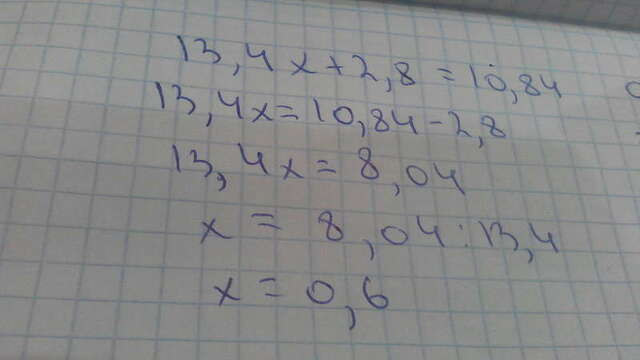 13,4x+2,8=10,84
13,4x=10,84-2,8
13,4x=8,04
x=8,04:13,4
x=0,6